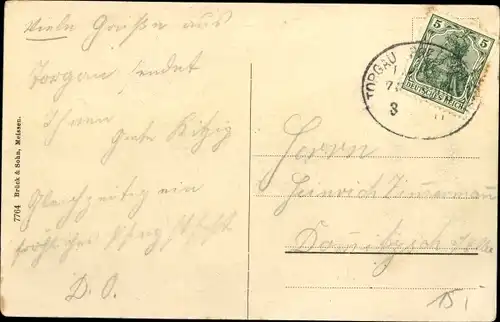 Viele Grüße aus
Torgau sendet
Ihnen
Gleichzeitig ein
fröhliches Pfingstfest
D. O.
7764 Brück & Sohn, Meissen.
TORGAU
3
5 5
DEUTSCHES REICH
Herrn
Heinrich Zimmermann